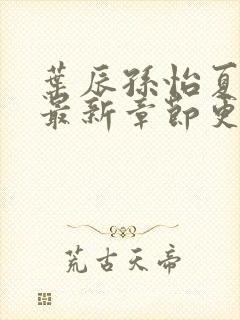 葉辰孫怡夏
最新章節更
荒古天帝